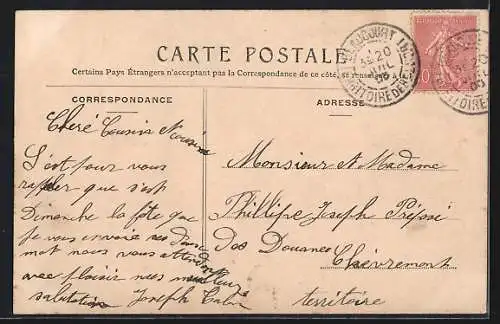 CARTE POSTALE
Certains Pays Étrangers n'acceptant pas la Correspondance de ce côté, se renseigner à la
CORRESPONDANCE
ADRESSE
BEAUCOURT
20
Cheré Cousin
S'est pour vous
rapler que s'est
Dimanche la fête que
je vous envoire ces deux
mot nous vous attendon
avec plaisir mes meilleure
salutation Joseph
Monsieur et Madame
Phillipe Joseph
des Douanes
Chèvremont
territoire